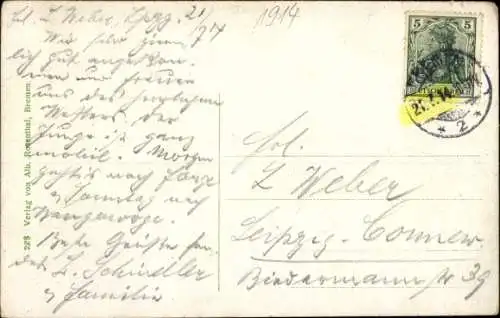 L. Weber, Lpzg. 21/7 14
1914
Wir sehr ziem
lich gut angekom
men und freuen
uns des herrlichen
Wetters. Der
Junge ist ganz
mobil. Morgen
geht's nach
Sonntag nach
Wangerooge.
Beste Grüße sen
det L. Schindler
& Familie
228 Verlag von Alb. Rosenthal, Bremen
5
21.7.14
* 2 *
L Weber
Leipzig-Connew.
Biedermannstr 39